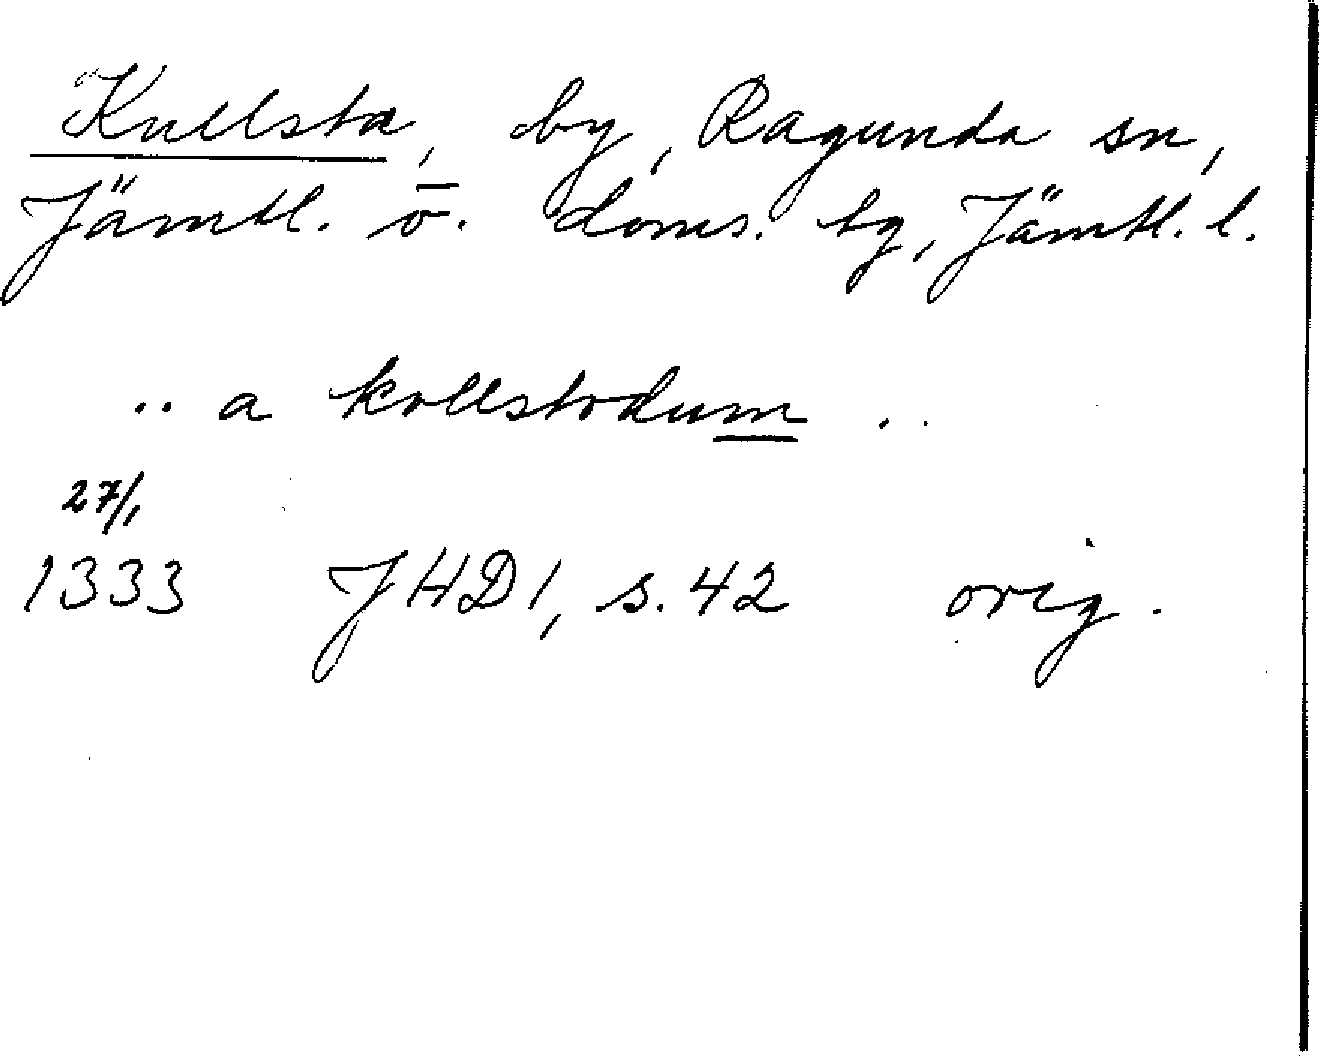 Kullsta, by, Ragunda sn,
Jämtl. ö. doms. tg, Jämtl. l.
.. a kollstodum ..
27/1
1333 JHD1, s. 42 orig.